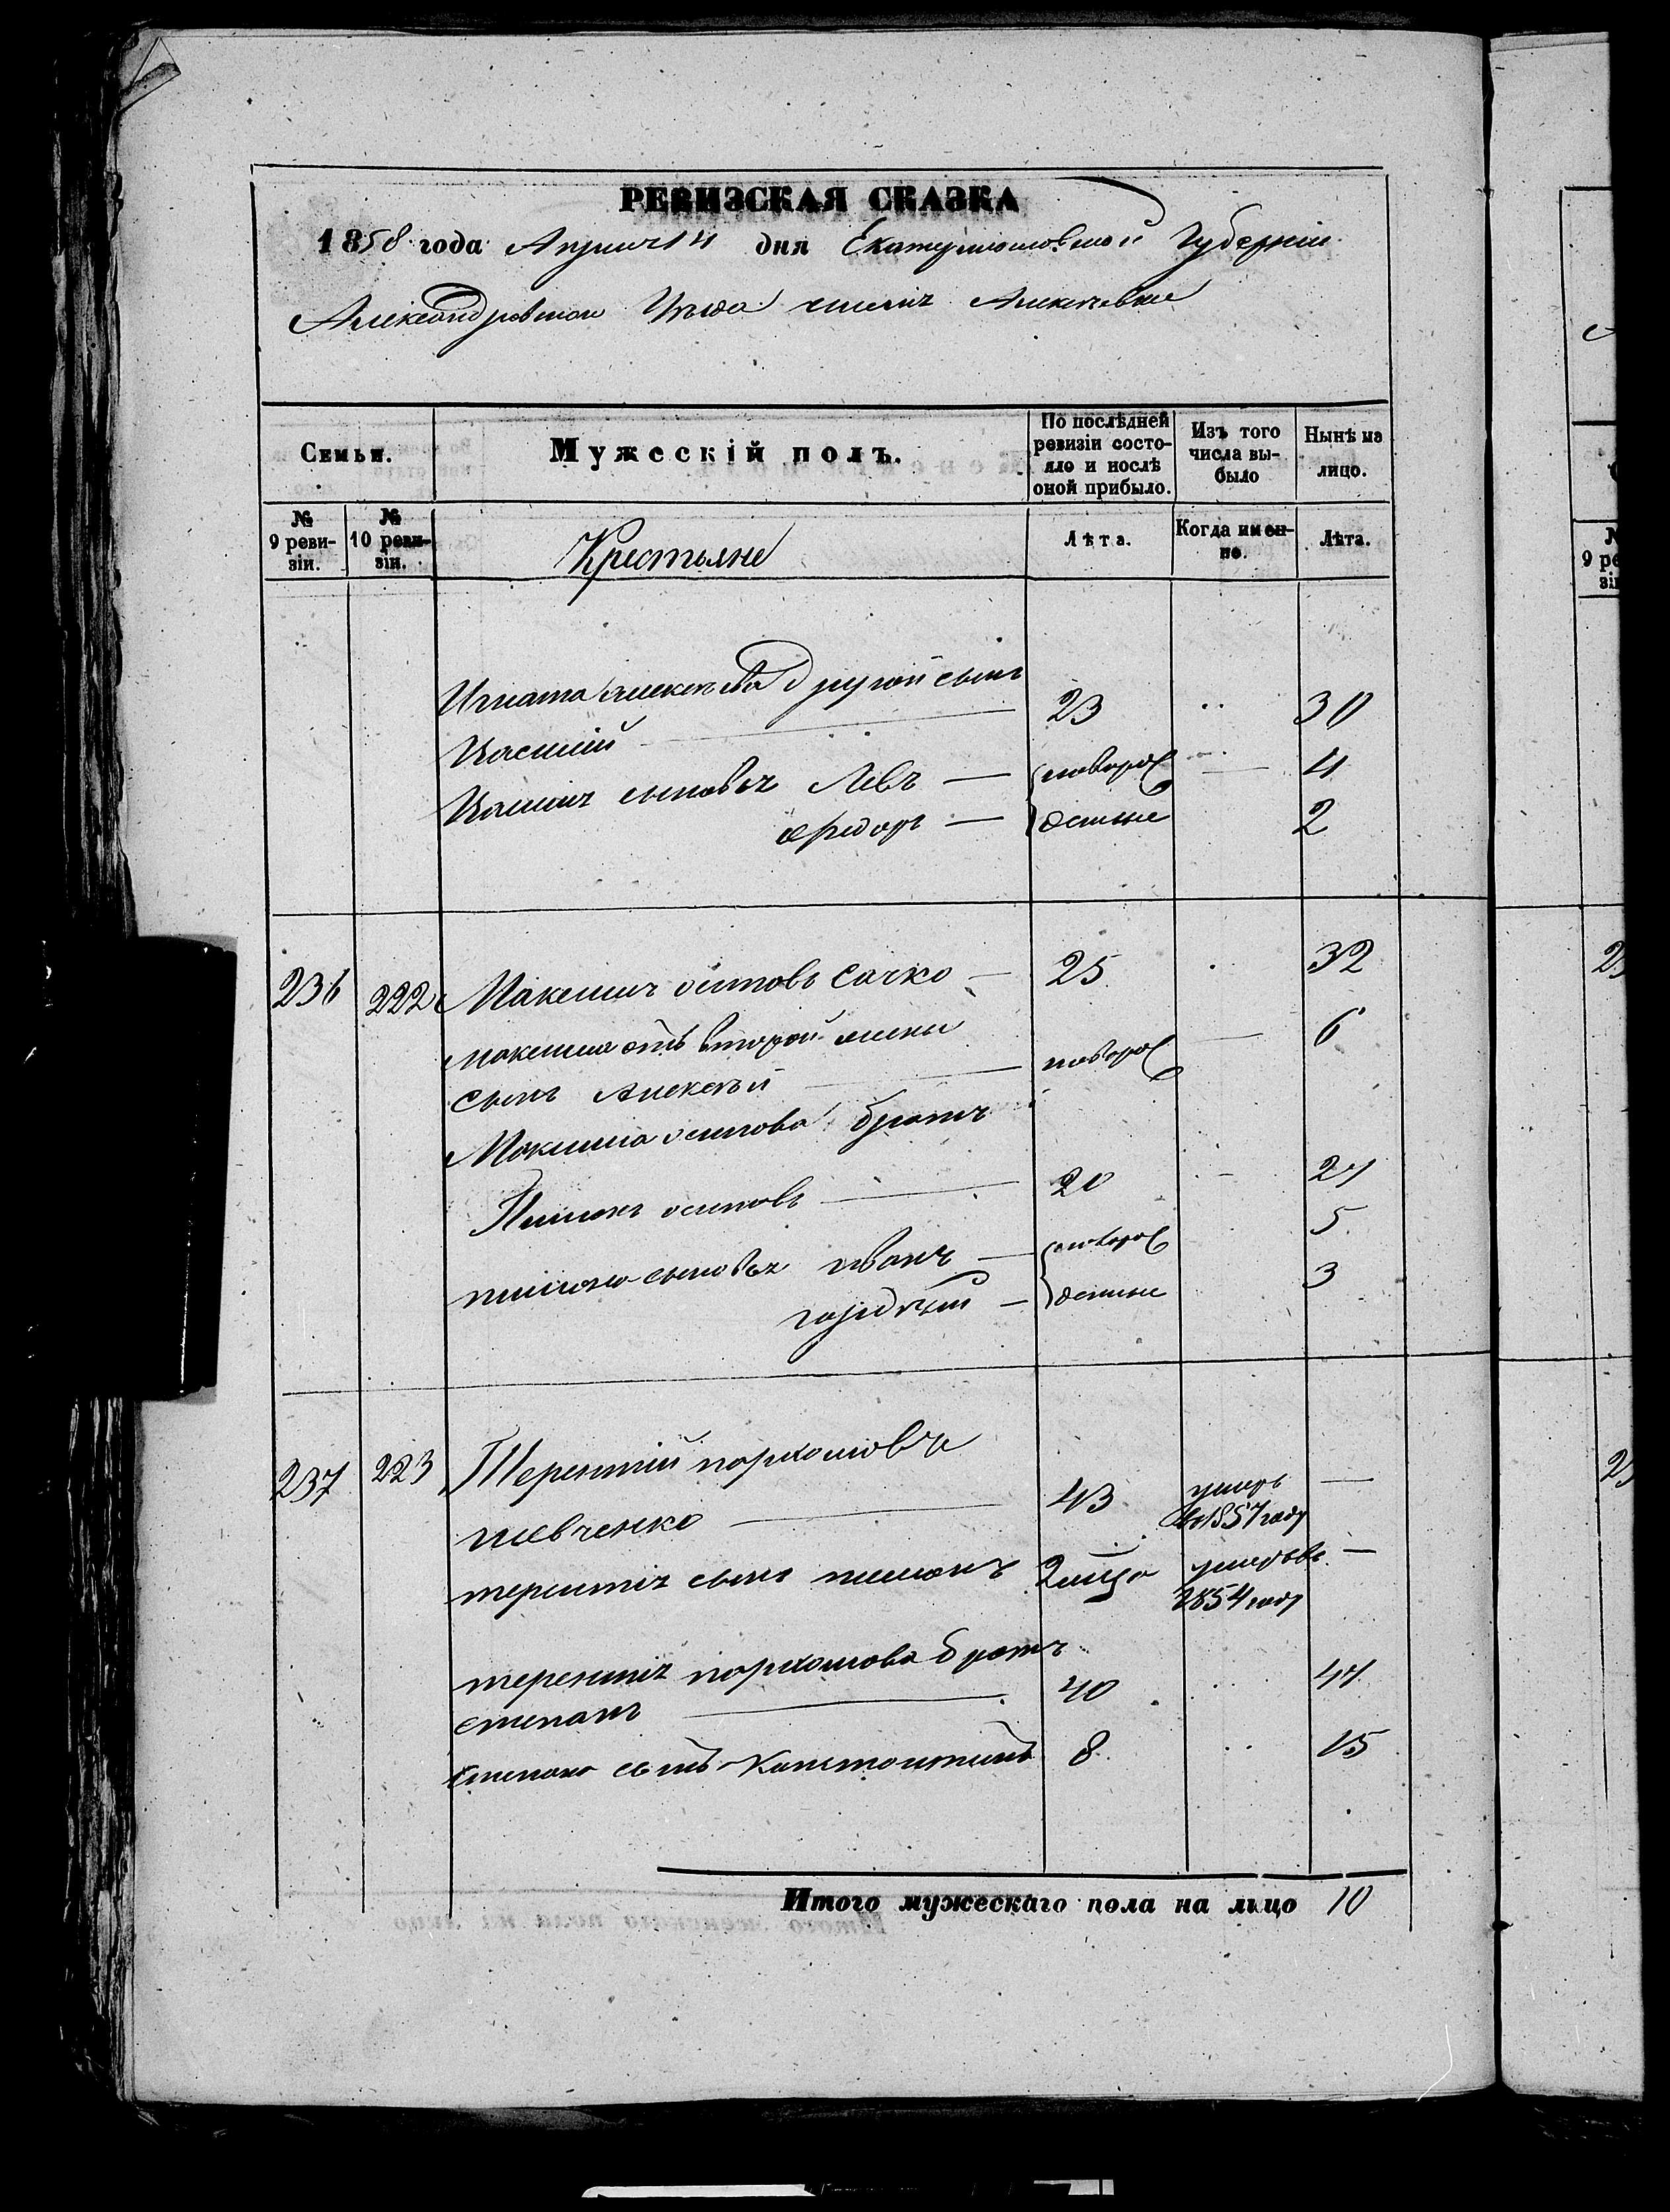 РЕВИЗСКАЯ СКАЗКА
1858 года Апреля 14 дня Екатеринославской Губерніи
Александровскаго Уѣзда Алексѣевки
Семьи.
Мужескій полъ.
По послѣдней ревизіи состояло и послѣ оной прибыло.
Изъ того числа выбыло
Нынѣ на лицо.
№ 9 ревизіи.
№ 10 ревизіи.
Крестьяне
Лѣта.
Когда именно.
Лѣта.
Игната Алексѣева другой сынъ
23 30
сыновья Левъ — новорож 4
Федоръ — денные 2
236 222 Максимъ осиповъ Сачко — 25 32
Максима отъ второй жены
сынъ Алексѣй новорож 6
Максима осипова братъ
Пименъ осиповъ 20 27
пимена сыновья иванъ — новорож 5
гордѣй — денные 3
237 223 Терентий пархомовъ
шевченко 43 умеръ в 1857 году —
терентія сынъ пименъ умеръ в 1854 году —
терентія пархомова братъ
степанъ 40 47
степана сынъ Константинъ 8 15
Итого мужескаго пола на лицо 10
9 ре